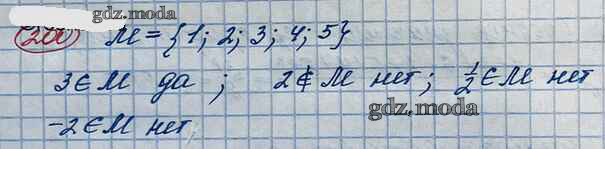 gdz.moda
200 M = {1; 2; 3; 4; 5}
3 ∈ M да ; 2 ∉ M нет ; 1/2 ∈ M нет
gdz.moda
-2 ∈ M нет